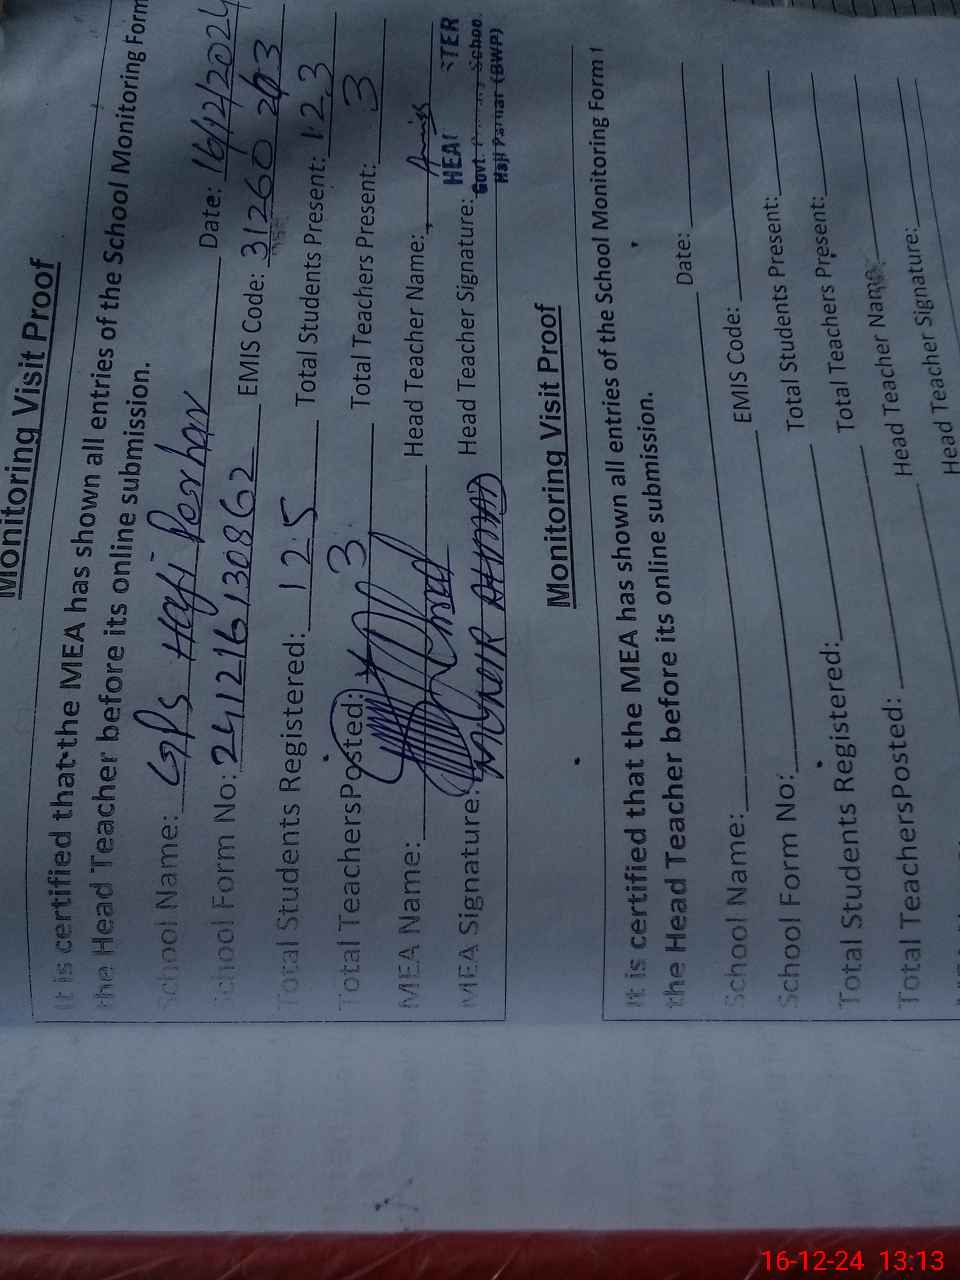 Monitoring Visit Proof
It is certified that the MEA has shown all entries of the School Monitoring Form
the Head Teacher before its online submission.
School Name: GPS Haji Pernhar Date: 16/12/2024
School Form No: 241216130862 EMIS Code: 31260203
Total Students Registered: 125 Total Students Present: 123
Total TeachersPosted: 3 Total Teachers Present: 3
MEA Name: Head Teacher Name:
MEA Signature: MUNIR AHMAD Head Teacher Signature:
HEA STER
Govt. Schoo
Haji Parhar (BWP)
Monitoring Visit Proof
It is certified that the MEA has shown all entries of the School Monitoring Form
the Head Teacher before its online submission.
School Name: Date:
School Form No: EMIS Code:
Total Students Registered: Total Students Present:
Total TeachersPosted: Total Teachers Present:
Head Teacher Name
Head Teacher Signature:
16-12-24 13:13